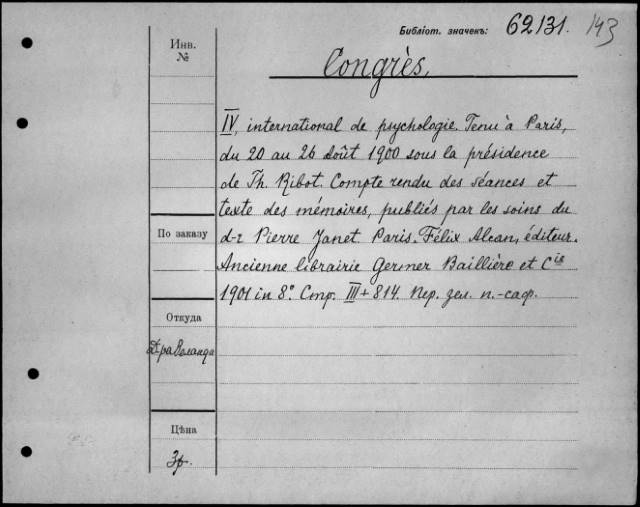 Библіот. значекъ: 62131. 143
Инв.
№
Congrès,
IV, international de psychologie. Tenu à Paris,
du 20 au 26 Août 1900 sous la présidence
de Th. Ribot. Compte rendu des séances et
texte des mémoires, publiés par les soins du
d-r Pierre Janet Paris. Félix Alcan, éditeur.
Ancienne librairie Germer Baillière et Cie
1901 in 8º. Стр. III + 814. Пер. зел. п.-саф.
По заказу
Откуда
Д-ра
Цѣна
3р.